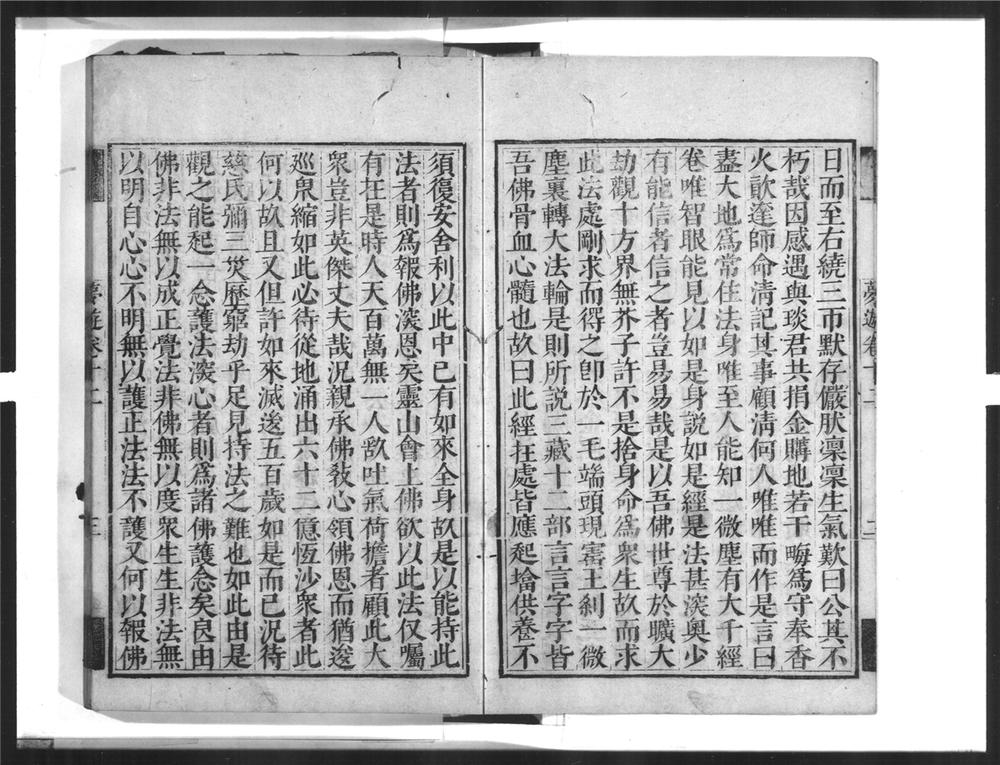 日而至右繞三帀默存儼肰凜凜生氣歎曰公其不
朽哉因感遇與琰君共捐金購地若干畮爲守奉香
火歖達師命淸記其事顧淸何人唯唯而作是言曰
盡大地爲常住法身唯至人能知一微塵有大千經
卷唯智眼能見以如是身說如是經是法甚深奧少
有能信者信之者豈易易哉是以吾佛世尊於曠大
劫觀十方界無芥子許不是捨身命爲衆生故而求
此法處剛求而得之卽於一毛端頭現寶王剎一微
塵裏轉大法輪是則所說三藏十二部言言字字皆
吾佛骨血心髓也故曰此經在處皆應起墖供養不
須復安舍利以此中已有如來全身故是以能持此
法者則爲報佛深恩矣靈山會上佛欲以此法仅囑
有在是時人天百萬無一人敢吐氣荷擔者顧此大
衆豈非英傑丈夫哉況親承佛敎心領佛恩而猶逡
巡畏縮如此必待從地涌出六十二億恆沙衆者此
何以故且又但許如來滅後五百歲如是而已況待
慈氏彌三災歷窮劫乎足見持法之難也如此由是
觀之能起一念護法深心者則爲諸佛護念矣良由
佛非法無以成正覺法非佛無以度衆生生非法無
以明自心心不明無以護正法法不護又何以報佛
夢遊卷十二
二
夢遊卷十二
三